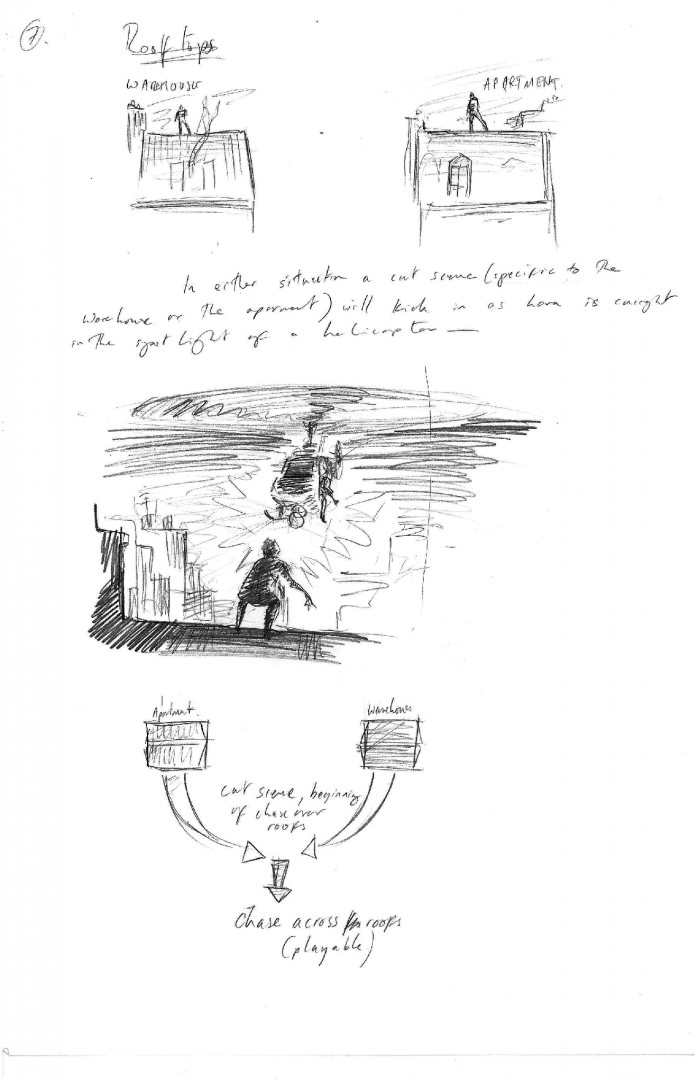 7.
Rooftops
WAREHOUSE
APARTMENT.
In either situation a cut scene (specific to the
warehouse or the aparment) will kick in as hero is caught
in the spot light of a helicopter —
Apartment.
Warehouses
cut scene, beginning
of chase over
roofs
Chase across roofs
(playable)